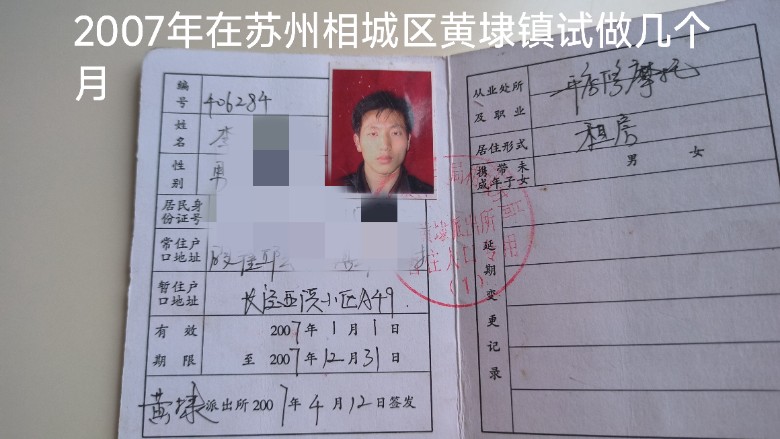 2007年在苏州相城区黄埭镇试做几个
月
编号 406284
姓名 李
性别 男
居民身份证号
常住户口地址
暂住户口地址 长泾西浜小区A49
有效 2007年1月1日
期限 至 2007年12月31日
黄埭派出所2007年4月12日签发
从业处所及职业 摩托
居住形式 租房
携带未成年子女 男 女
延期变更记录
黄埭派出所
(1)